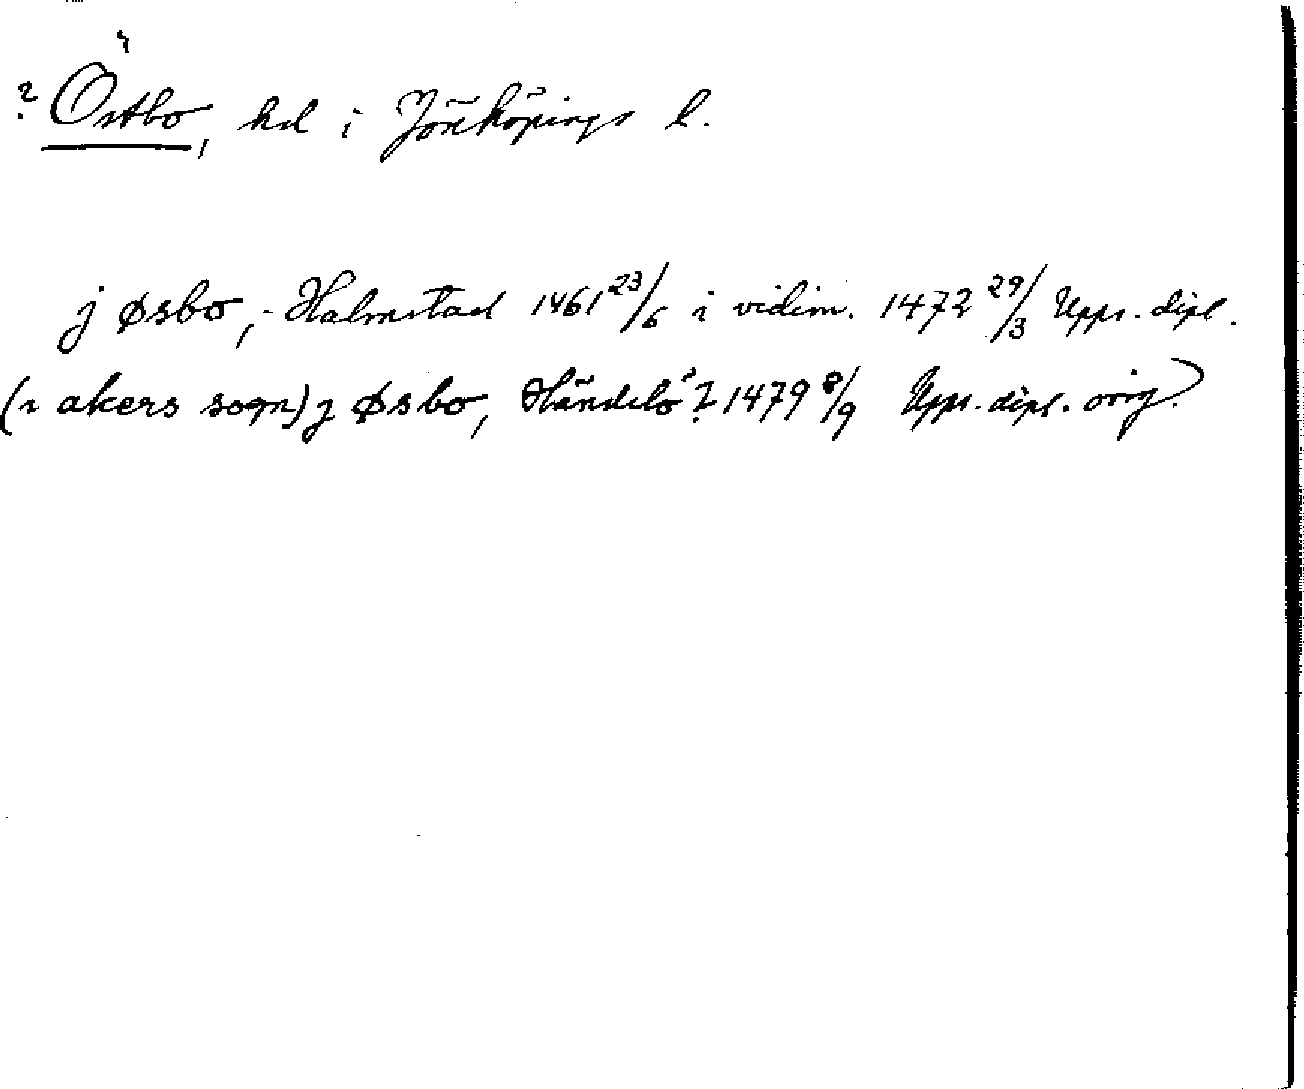 ? Östbo, hd i Jönköpings l.
j øsbo, Halmstad 1461 23/6 i vidim. 1472 29/3 Upps. dipl.
(i akers sogn) j øsbo, Händelö? 1479 8/9 Upps. dipl. orig.)